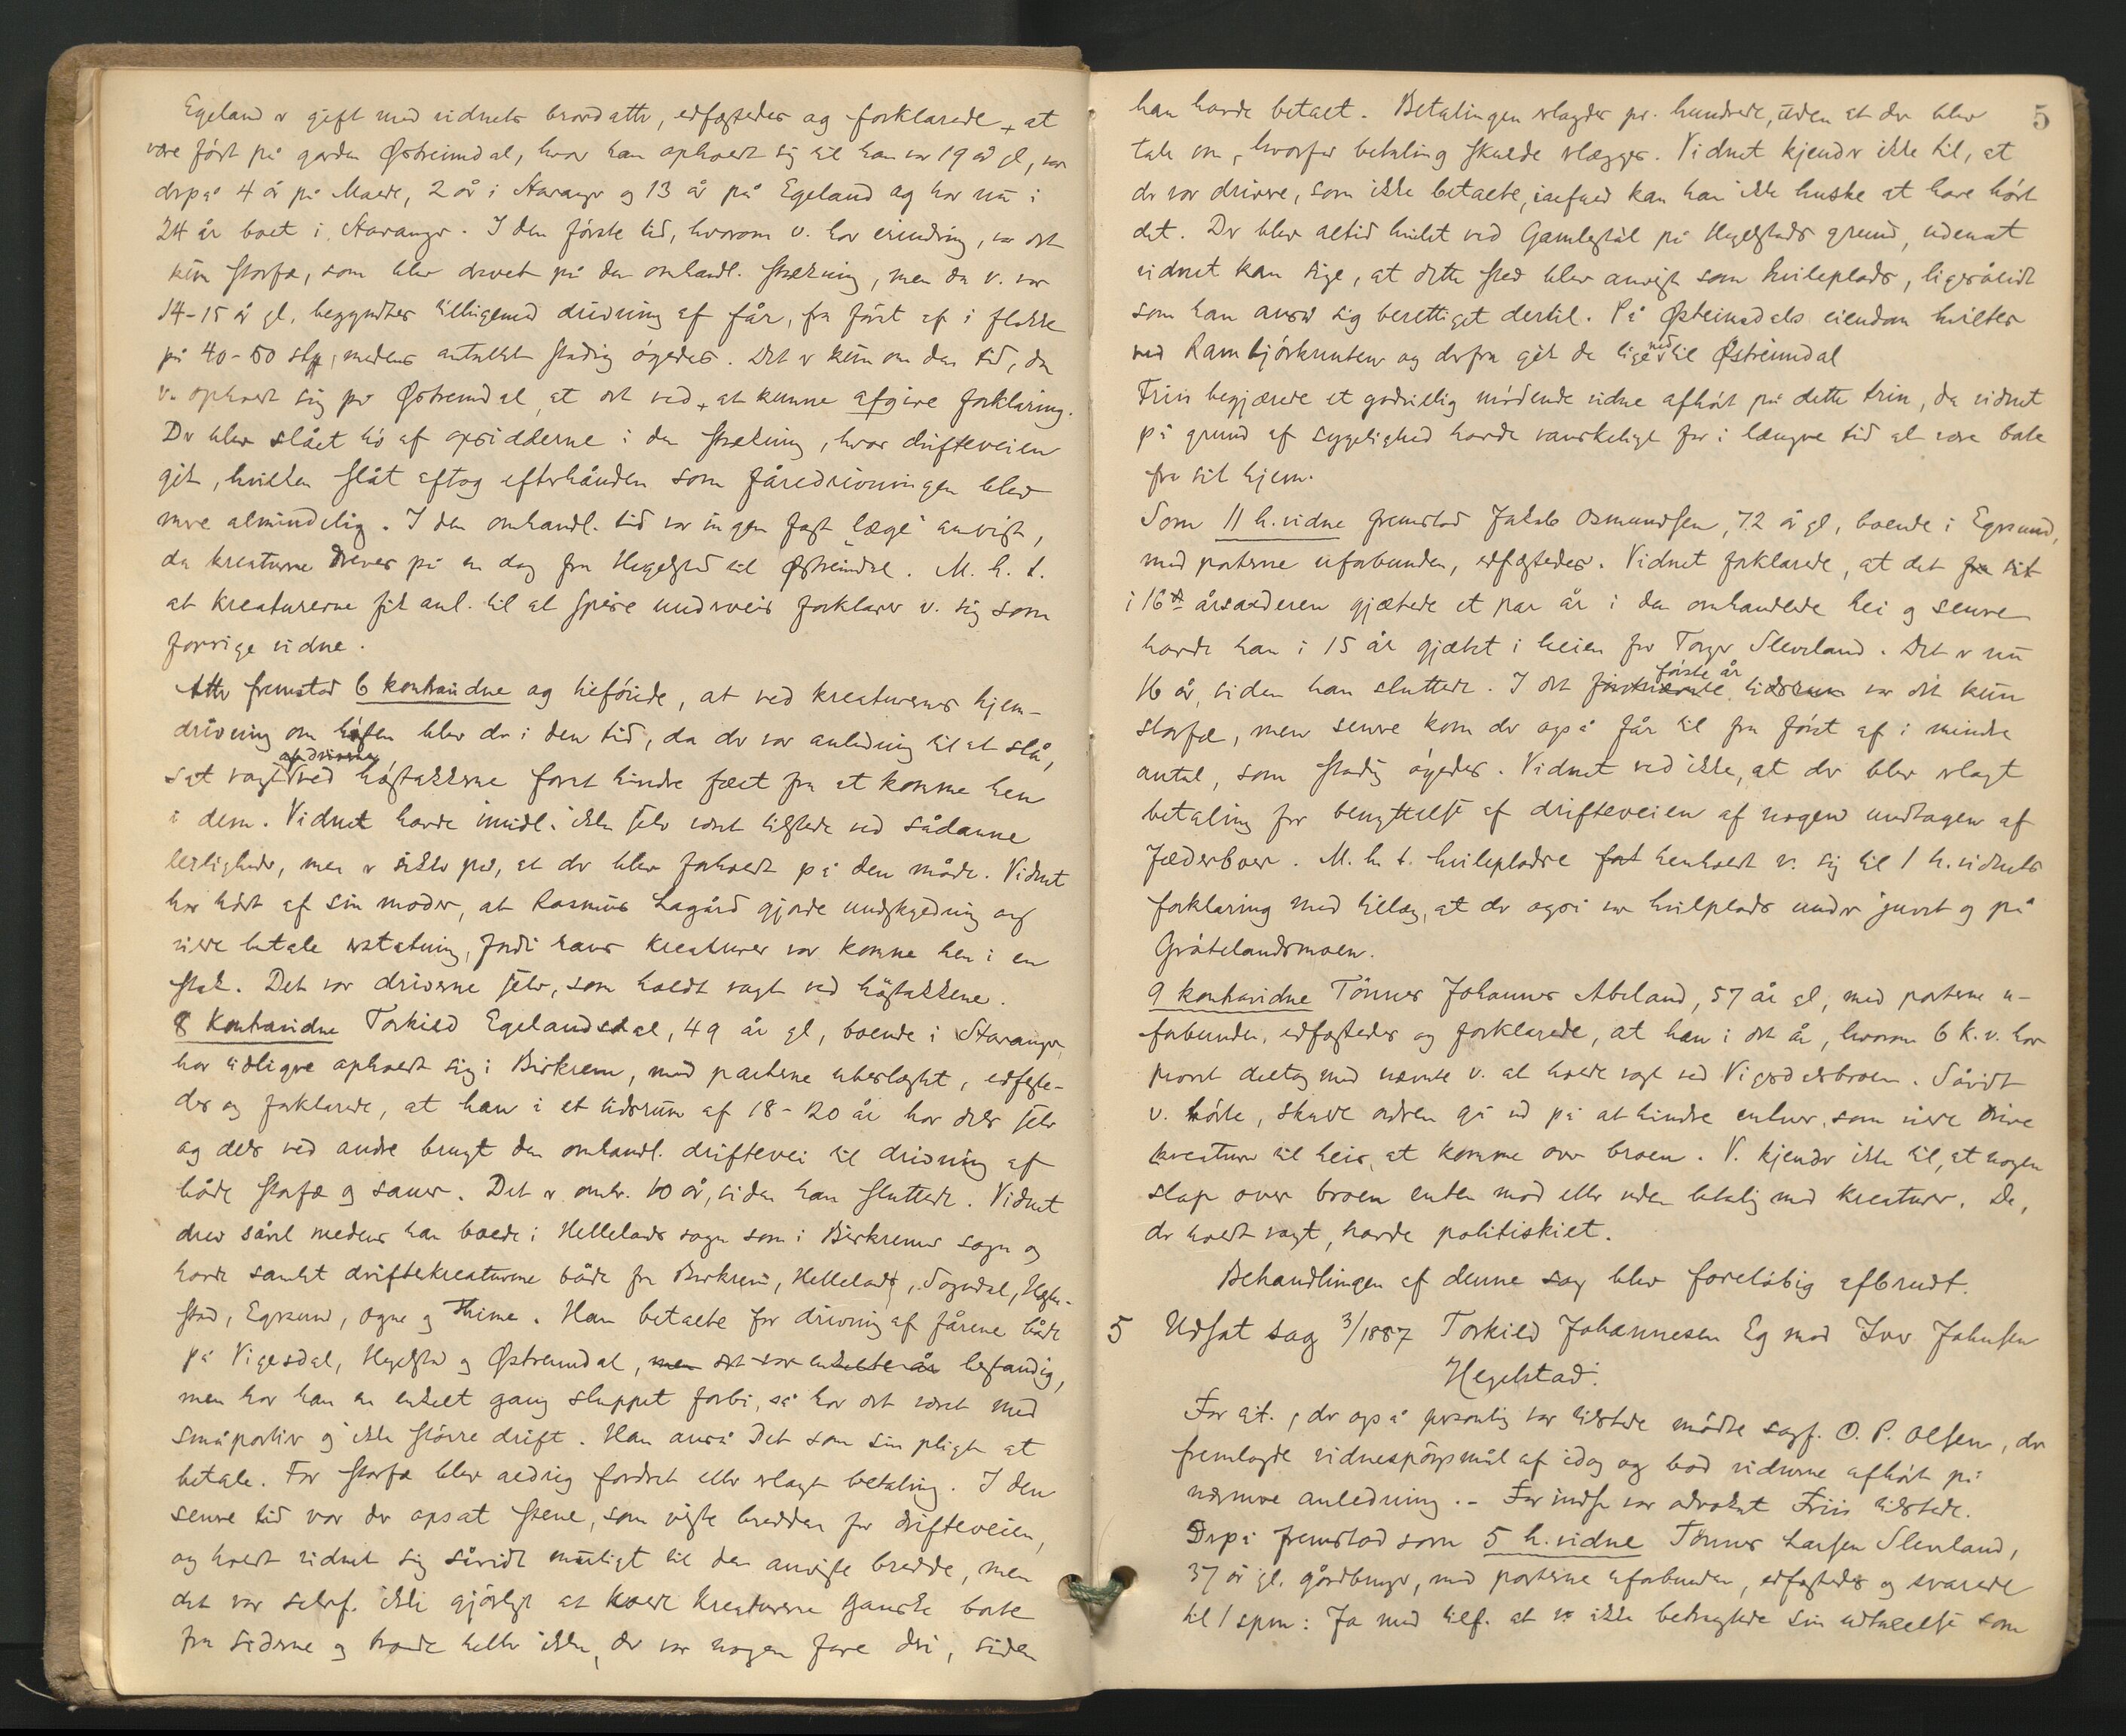 Egeland er gift med vidnets brordatter, edfæstedes og forklarede, at
være født på garden Østreimdal, hvor han opholdt sig til han var 19 år gl, var
derpå 4 år på Maele, 2 år i Stavanger og 13 år på Egeland og har nu i
24 år boet i Stavanger. I den første tid, hvorom v. har erindring, var det
kun storfæ, som blev drevet på den omhandl. strækning, men da v. var
14-15 år gl. begyndtes tilligemed drivning af får, fra først af i flokke
på 40-50 stk, medens antallet stadig øgedes. Det er kun om den tid, da
v. opholdt sig på Østreimdal, at det ved at kunne afgive forklaring.
Der blev slået hø af opsidderne i den strækning, hvor drifteveien
gik, hvilken slåt aftog efterhånden som fåredrivningen blev
mere almindelig. I den omhandl. tid var ingen fast læge anvist,
da kreaturene dreves på en dag fra Hegelstad til Østreimdal. M. h. t.
at kreaturerne fik anl. til at spise underveis forklarer v. sig som
forrige vidne.
Atter fremstod 6 kontravidne og tilføiede, at ved kreaturernes hjem-
drivning om høsten blev der i den tid, da der var anledning til at slå,
af driverne
sat vagt ved høstakkerne forat hindre fæet fra at komme hen
i dem. Vidnet havde imidl. ikke selv været tilstede ved sådanne
leiligheder, men er sikker på, at der blev forholdt på den måde. Vidnet
har hørt af sin moder, at Rasmus Lagård gjorde undskyldning og
vilde betale erstatning, fordi hans kreaturer var komne hen i en
stak. Det var driverne selv, som holdt vagt ved høstakkene.
8 kontravidne Torkild Egelandsdal, 49 år gl, boende i Stavanger,
har tidligere opholdt sig i Birkrem, med parterne ubeslægtet, edfæste-
des og forklarede, at han i et tidsrum af 18-20 år har dels selv
og dels ved andre brugt den omhandl. driftevei til drivning af
både storfæ og sauer. Det er omtr. 10 år, siden han sluttede. Vidnet
drev såvel medens han boede i Hellelands sogn som i Birkrems sogn og
havde samlet driftekreaturerne både fra Birkrem, Helleland, Sogndal, Hægbo-
stad, Egersund, Ogne og Thime. Han betalte for drivning af fårene både
på Vigesdal, Hegelstad og Østreimdal, men det var enkelte år bestandig,
men har han en enkelt gang sluppet forbi, så har det været med
småpartier og ikke større drift. Han anså det som sin pligt at
betale. For storfæ blev aldrig fordret eller erlagt betaling. I den
senere tid var der opsat stene, som viste bredden for drifteveien,
og holdt vidnet sig såvidt muligt til den anviste bredde, men
det var selvf. ikke gjørligt at holde kreaturerne ganske borte
fra siderne og troede heller ikke, der var nogen fare deri, siden
5
han havde betalt. Betalingen erlagdes pr. hundrede, uden at der blev
tale om, hvorfor betaling skulde erlægges. Vidnet kjender ikke til, at
der var drivere, som ikke betalte, ialfald kan han ikke huske at have hørt
det. Der blev altid hvilet ved Gamlestøl på Hegelstads grund, udenat
vidnet kan sige, at dette sted blev anvist som hvileplads, ligesålidt
som han anså sig berettiget dertil. På Østreimdals eiendom hviltes
ned
ved Rambjørknuten og derfra gik de lige til Østreimdal
Friis begjærede et godvillig mødende vidne afhørt på dette trin, da vidnet
på grund af sygelighed havde vanskeligt for i længere tid at være borte
fra sit hjem.
Som 11 h. vidne fremstod Jakob Osmundsen, 72 år gl, boende i Egersund,
med parterne uforbunden, edfæstedes. Vidnet forklarede, at det fra sit
i 16de årsalderen gjætede et par år i den omhandlede hei og senere
havde han i 15 år gjætet i heien for Torger Sleveland. Det er nu
første år
16 år, siden han sluttede. I det førstnævnte tidsrum var det kun
storfæ, men senere kom der også får til fra først af i mindre
antal, som stadig øgedes. Vidnet ved ikke, at der blev erlagt
betaling for benyttelse af drifteveien af nogen undtagen af
Jæderboer. M. h. t. hvilepladse fat henholdt v. sig til 1 h. vidnets
forklaring med tillæg, at der også var hvileplads under juvet og på
Gråtelandsmoen.
9 kontravidne Tønnes Johannes Abeland, 57 år gl, med parterne u-
forbunden, edfæstedes og forklarede, at han i det år, hvorom 6 k. v. har
provet deltog med nævnte v. at holde vagt ved Vigesdalsbroen. Såvidt
v. hørte, skulde ordren gå ud på at hindre enhver, som vilde drive
kreaturer til heis, at komme over broen. V. kjender ikke til, at nogen
slap over broen enten mod eller uden betaling med kreaturer. De,
der holdt vagt, havde politiskilt.
Behandlingen af denne sag blev foreløbig afbrudt.
5 Udsat sag 3/1887 Torkild Johannesen Eg mod Iver Johnsen
Hegelstad.
For cit., der også personlig var tilstede mødte sagf. O. P. Olsen, der
fremlagde vidnespørgsmål af idag og bad vidnerne afhørt på
nærmere anledning. - For indst. var advokat Friis tilstede.
Derpå fremstod som 5 h. vidne Tønnes Larsen Sleveland,
37 år gl. gårdbruger, med parterne uforbunden, edfæstedes og svarede
til 1 spm: Ja med tilf. at v. ikke betragtede sin udtalelse som